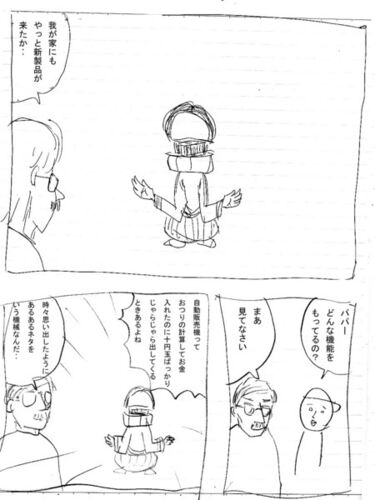 我が家にも
やっと新製品が
来たか‥
パパー
どんな機能を
もってるの？
まあ
見てなさい
自動販売機って
おつりの計算してお金
入れたのに十円玉ばっかり
じゃらじゃら出してくる
ときあるよね
時々思い出したように
あるあるネタを
いう機械なんだ‥